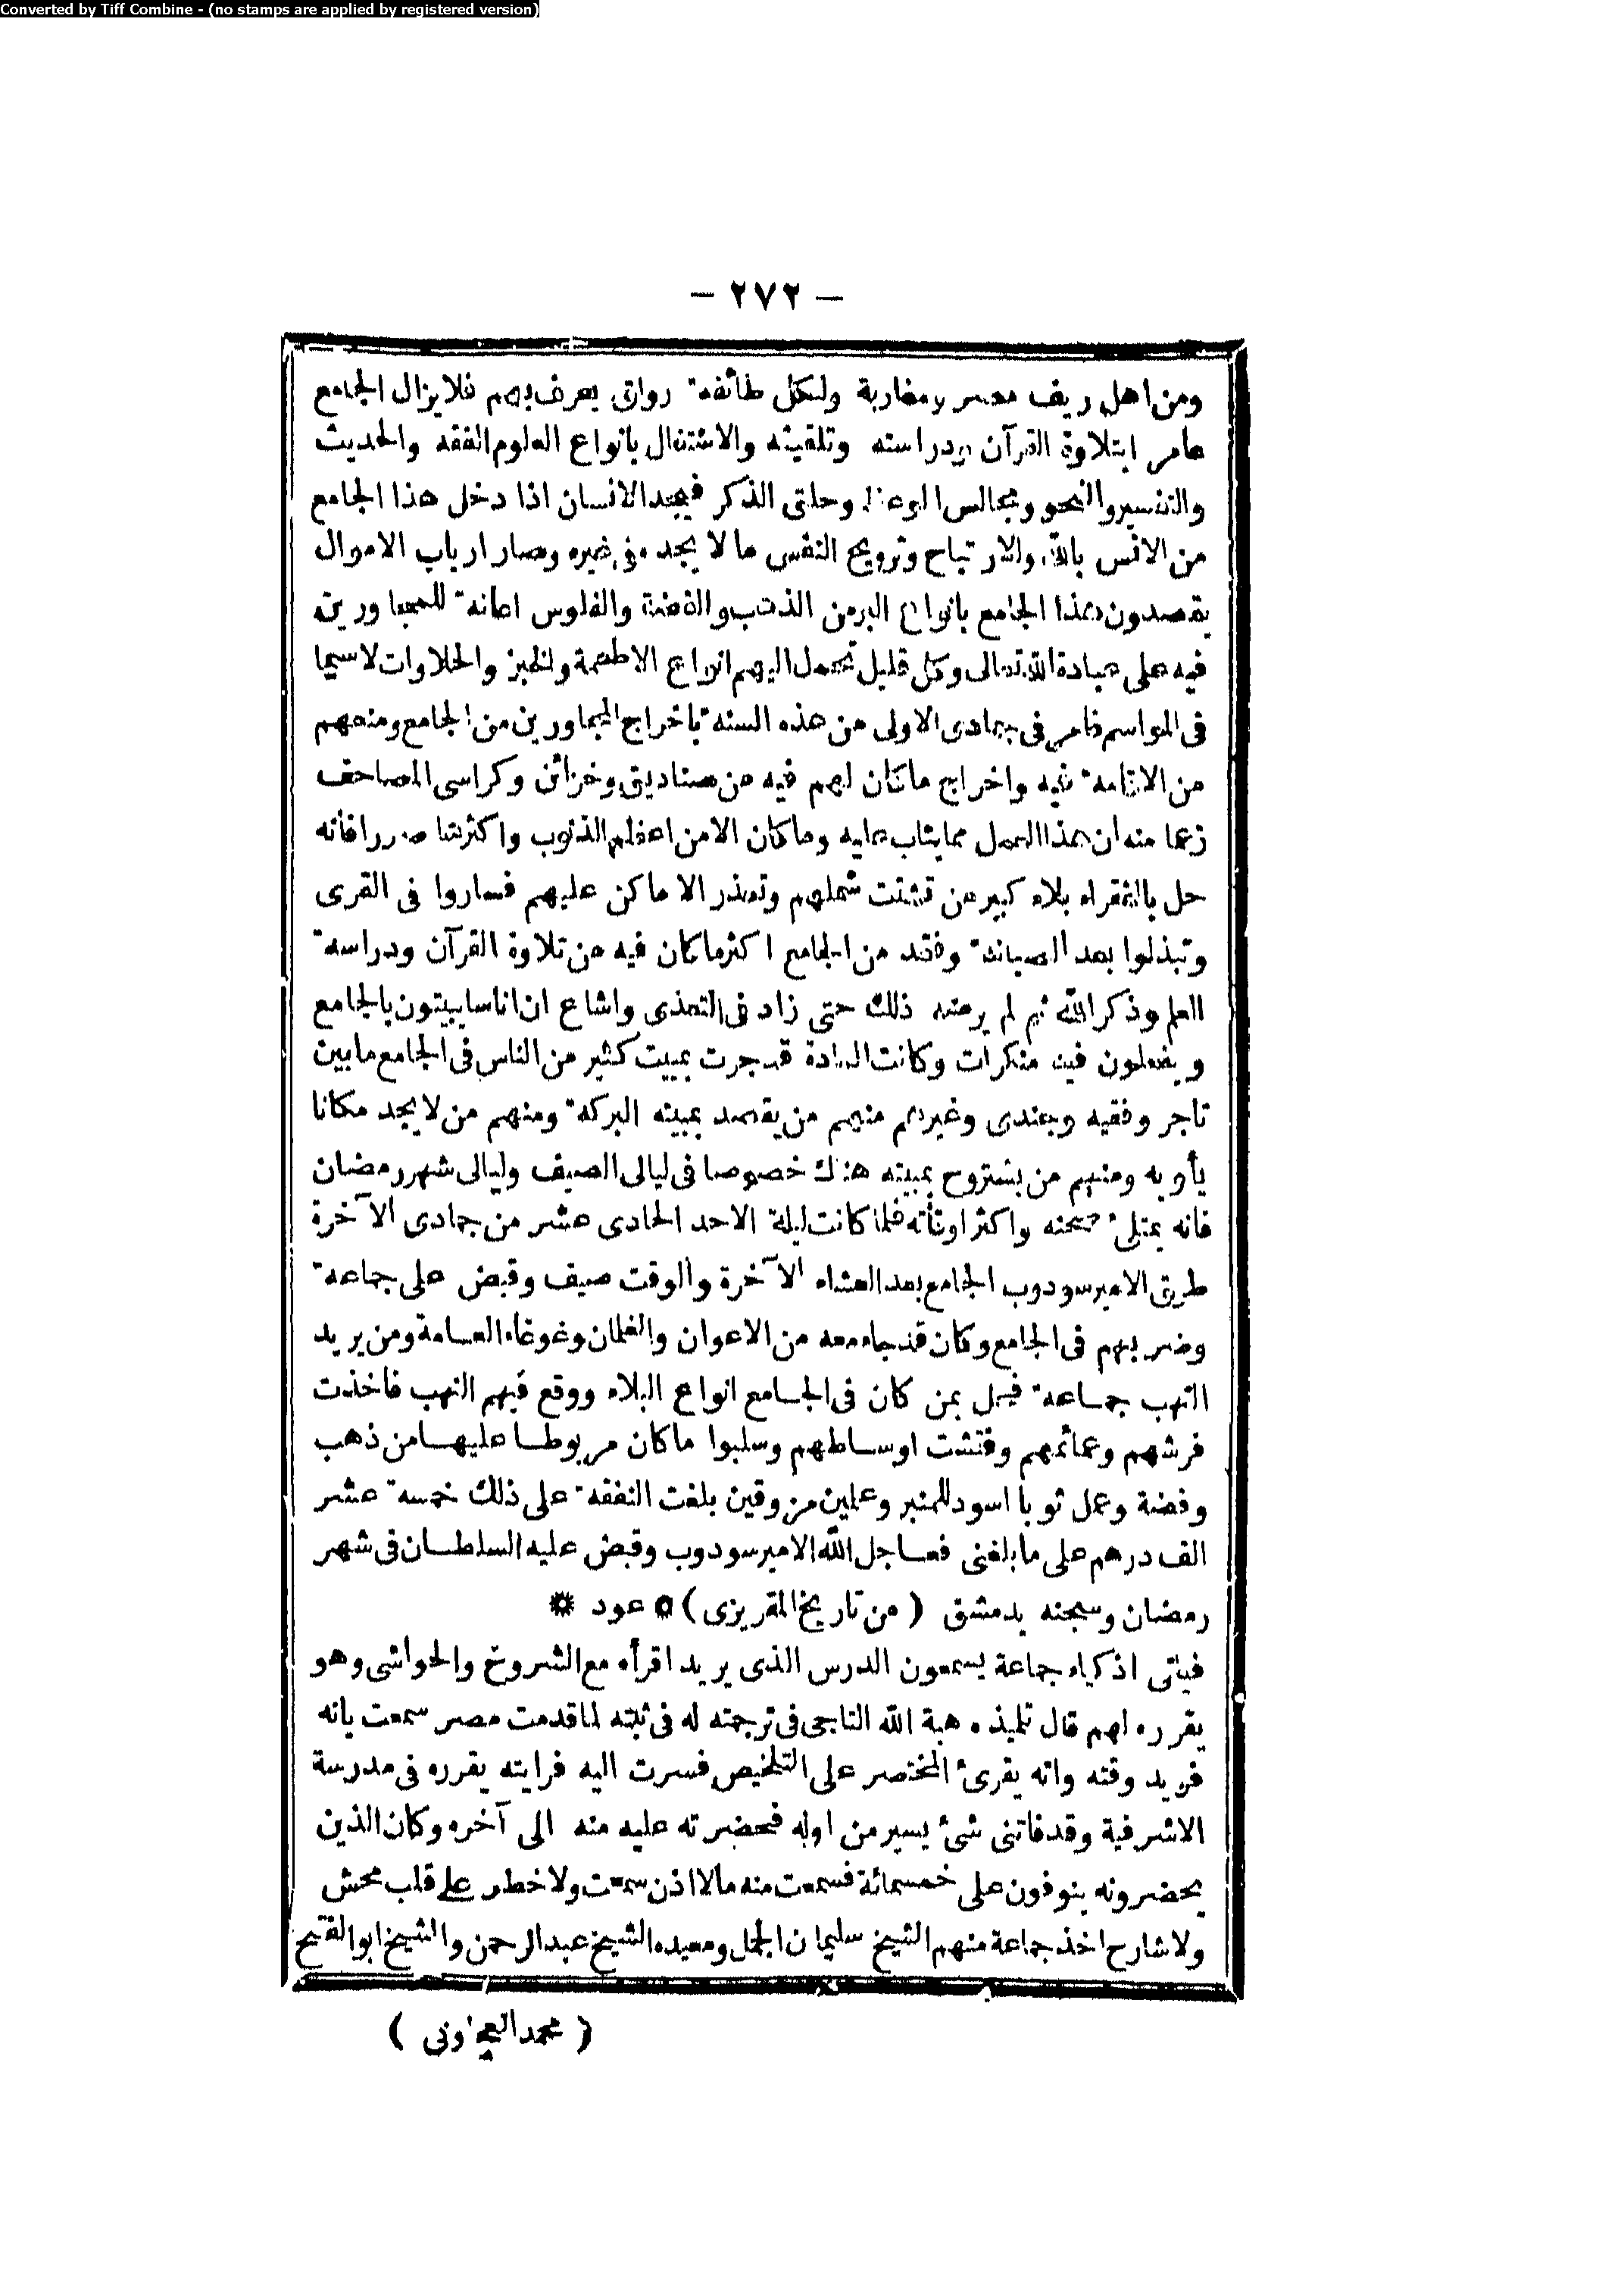 Converted by Tiff Combine - (no stamps are applied by registered version)
- ٢٧٢ -
ومن اهل ريف مصر ومغاربة ولكل طائفة رواق يعرف بهم فلايزال الجامع
عامر ابتلاوة القرآن ودراسته وتلقينه والاشتغال بانواع العلوم الفقه والحديث
والتفسير والنحو ومجالس الوعظ وحلق الذكر فيجد الانسان اذا دخل هذا الجامع
من الانس بالله والارتياح وترويح النفس ما لا يجده فى غيره وصار ارباب الاموال
يقصدون هذا الجامع بانواع البرمن الذهب والفضة والفلوس اعانة للمجاورين
فيه على عبادة الله تعالى وكل قليل تحمل اليهم انواع الاطعمة والخبز والحلاوات لاسيما
فى المواسم فامر فى جمادى الاولى من هذه السنة باخراج المجاورين من الجامع ومنعهم
من الاقامة فيه واخراج ما كان لهم فيه من صناديق وخزائن وكراسى المصاحف
زعما منه ان هذا العمل مما يثاب عليه وما كان الا من اعظم الذنوب واكثرها ضررا فانه
حل بالفقراء بلاء كبير من تشتت شملهم وتعذر الاماكن عليهم فساروا فى القرى
وتبذلوا بعد الصيانة وفقد من الجامع اكثر ما كان فيه من تلاوة القرآن ودراسة
العلم وذكر الله ثم لم يرضه ذلك حتى زاد فى التعدى واشاع ان اناسا يبيتون بالجامع
ويفعلون فيه منكرات وكانت العادة قد جرت بمبيت كثير من الناس فى الجامع مابين
تاجر وفقيه وجندى وغيرهم منهم من يقصد بمبيته البركة ومنهم من لا يجد مكانا
يأويه ومنهم من يستروح بمبيته هناك خصوصا فى ليالى الصيف وليالى شهر رمضان
فانه يمتلئ صحنه واكثر اوقاته فلما كانت ليلة الاحد الحادى عشر من جمادى الآخرة
طريق الامير سودوب الجامع بعد العشاء الآخرة والوقت صيف وقبض على جماعة
وضربهم فى الجامع وكان قد جاء معه من الاعوان والغلمان وغوغاء العامة ومن يريد
النهب جماعة فحل بمن كان فى الجامع انواع البلاء ووقع فيهم النهب فاخذت
فرشهم وعمائمهم وفتشت اوساطهم وسلبوا ما كان مربوطا عليها من ذهب
وفضة وعمل ثوبا اسود للمنبر وعلين مزوقين بلغت النفقة على ذلك خمسة عشر
الف درهم على ما بلغنى فعاجل الله الامير سودوب وقبض عليه السلطان فى شهر
رمضان وسجنه بدمشق ( من تاريخ المقريزى ) * عود *
فيأتى اذكياء جماعة يسمعون الدرس الذى يريد اقرأه مع الشروخ والحواشى وهو
يقرره لهم قال تلميذه هبة الله التاجى فى ترجمته له فى ثبته لما قدمت مصر سمعت بانه
فريد وقته وانه يقرئ المختصر على التلخيص فسرت اليه فرايته يقرره فى مدرسة
الاشرفية وقد فاتنى شئ يسير من اوله فحضرته عليه منه الى آخره وكان الذين
يحضرونه ينوفون على خمسمائة فسمعت منه مالا اذن سمعت ولا خطر على قلب محش
ولا شارح اخذ جماعة منهم الشيخ سليمان الجمل ومعيده الشيخ عبد الرحمن والشيخ ابو الفتح
( محمد العجلونى )